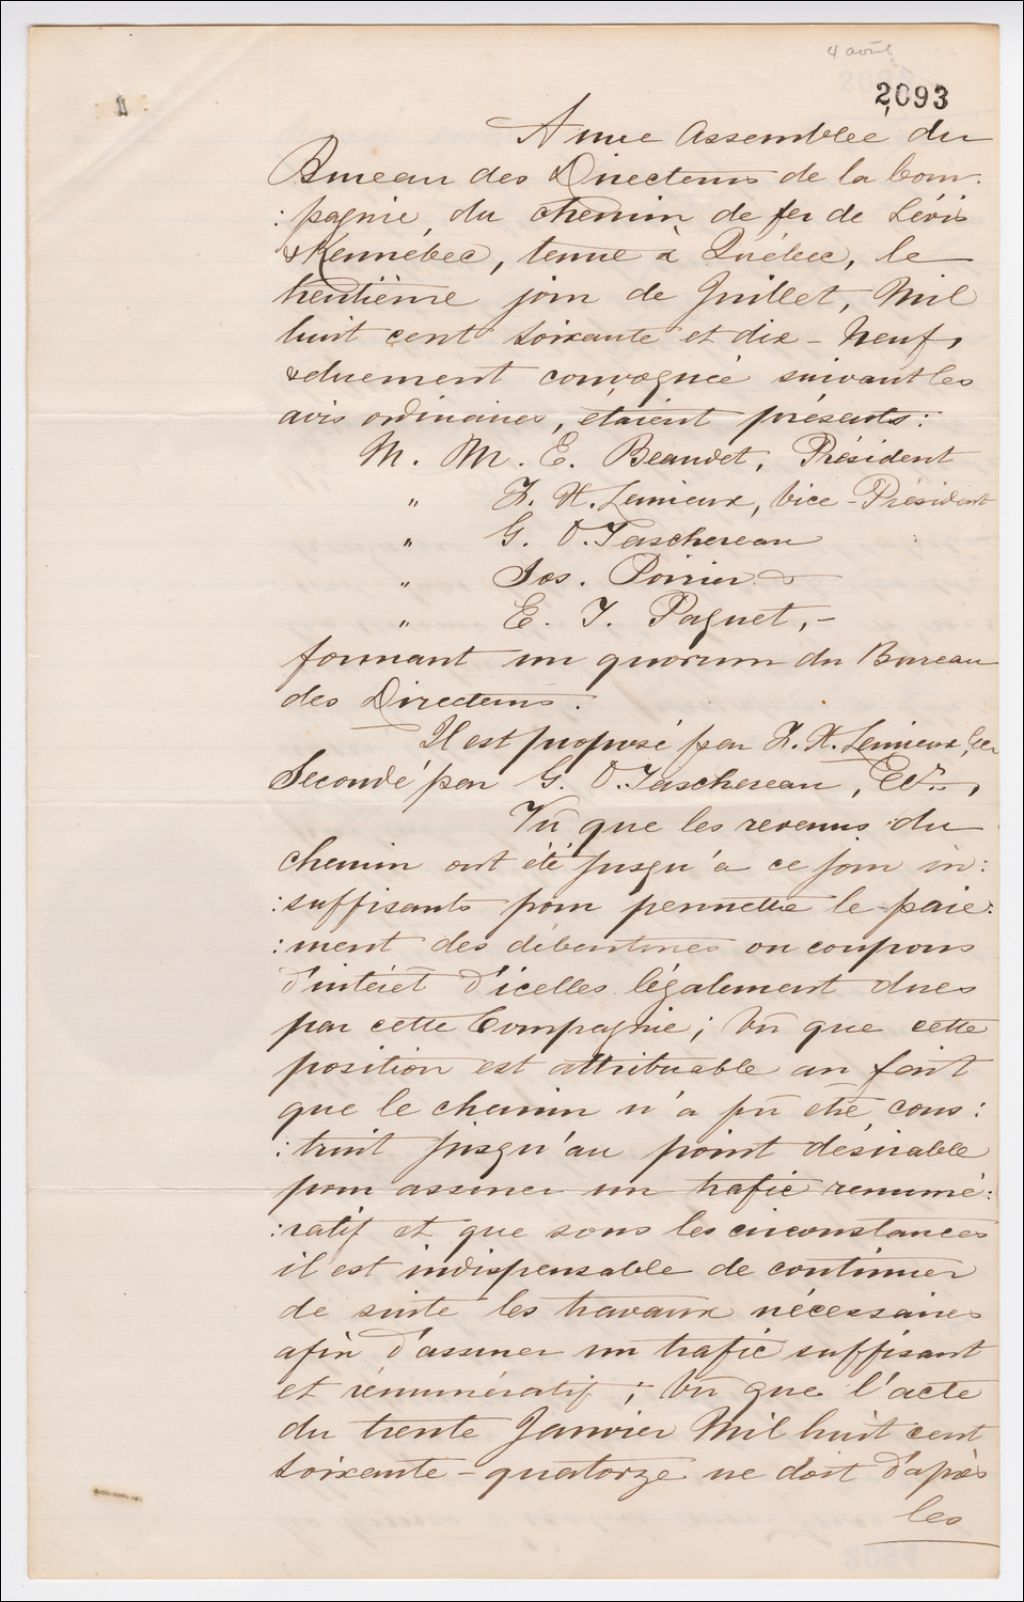 4 août
2093
A une Assemblée du
Bureau des Directeurs de la Com:
:pagnie du chemin de fer de Lévis
& Kennébec, tenue à Québec, le
trentième jour de Juillet, Mil
huit cent soixante et dix-Neuf,
& duement convoquée suivant les
avis ordinaires, étaient présents:
M. M. E. Beaudet, Président
" L. H. Lemieux, Vice-Président
" G. O. Taschereau
" Jos. Poirier &
" E. T. Paquet,-
formant un quorum du Bureau
des Directeurs.
Il est proposé par L. H. Lemieux, Ecr
Secondé par G. O. Taschereau, Ecr.,
Vû que les revenus du
chemin ont été jusqu'à ce jour in:
:suffisants pour permettre le paie:
:ment des débentures ou coupons
d'intérêt d'icelles légalement dues
par cette Compagnie; Vû que cette
position est attribuable au fait
que le chemin n'a pû être cons:
:truit jusqu'au point désirable
pour assurer un trafic renumé:
:ratif et que sous les circonstances
il est indispensable de continuer
de suite les travaux nécessaires
afin d'assurer un trafic suffisant
et rénumératif; Vû que l'acte
du trente Janvier Mil huit cent
soixante-quatorze ne doit d'après
les